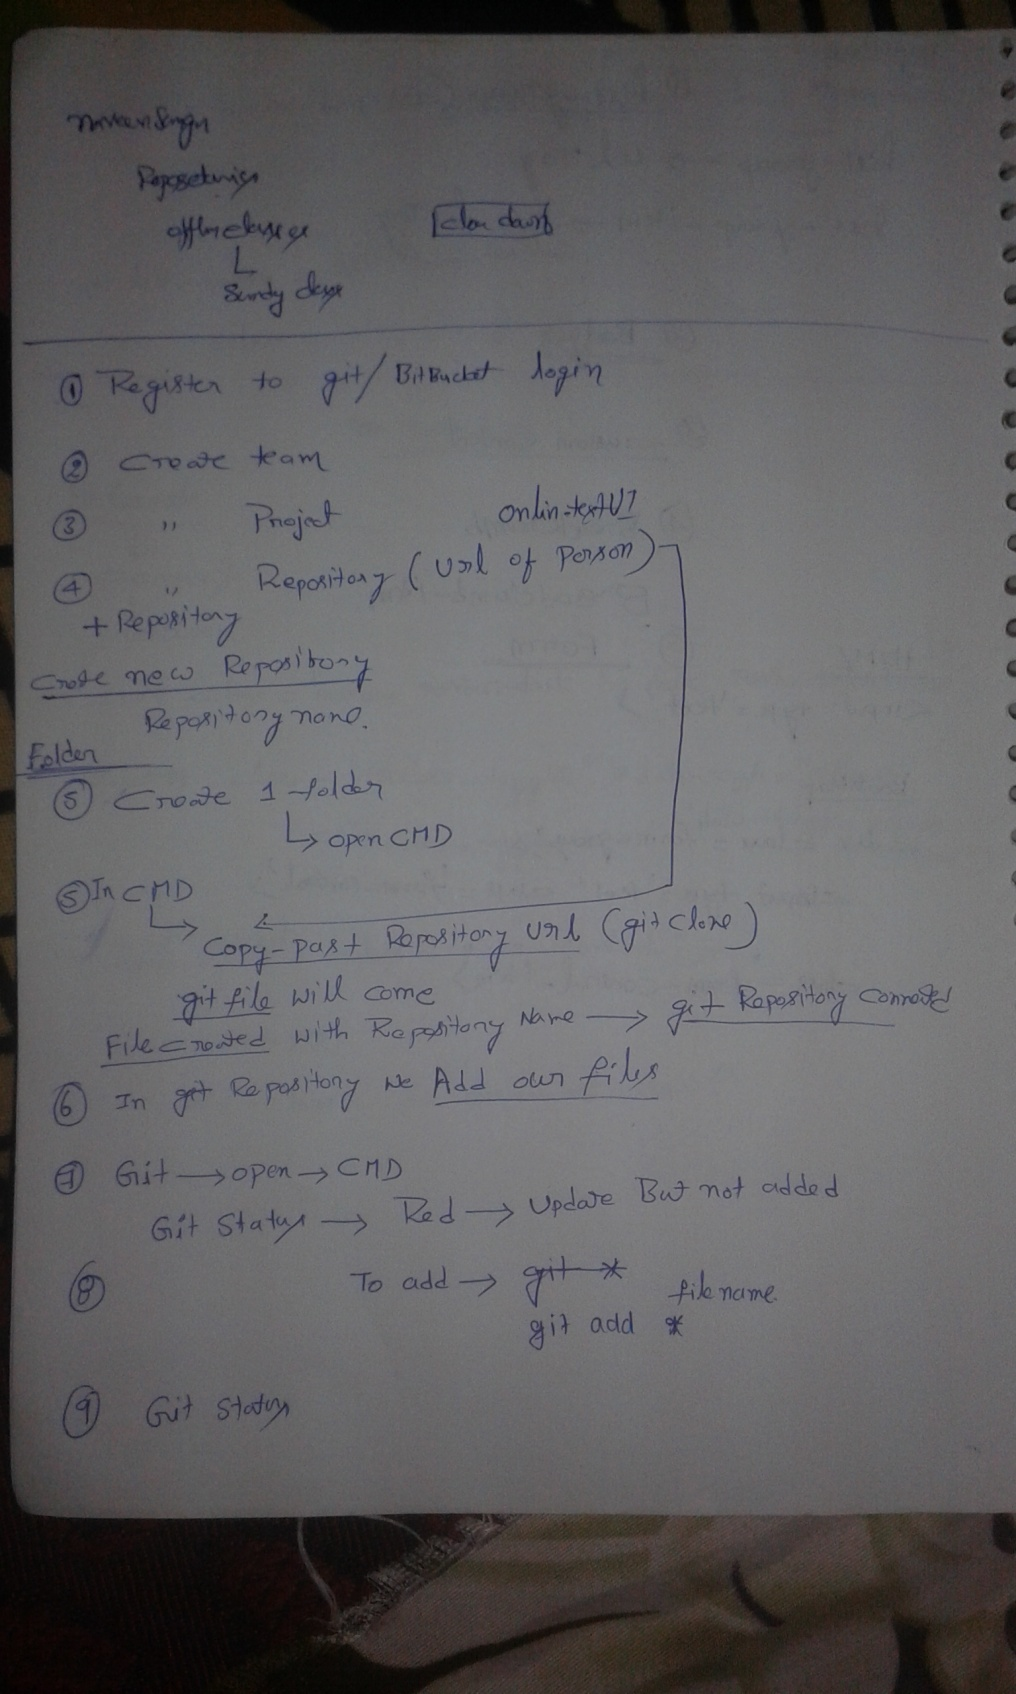 Repositories
offline classes
Sunday class
① Register to git/BitBucket login
② Create team
③ " Project
onlin-testUI
④ " Repository (Url of Person)
+ Repository
Create new Repository
Repository name.
Folder
⑤ Create 1 folder
↳ open CMD
⑤ In CMD
↳ Copy-past Repository url (git clone)
git file will come
File created with Repository Name → git Repository Connected
⑥ In git Repository we Add our files
⑦ Git → open → CMD
Git Status → Red → Update But not added
⑧ To add → git *
filename
git add *
⑨ Git Status